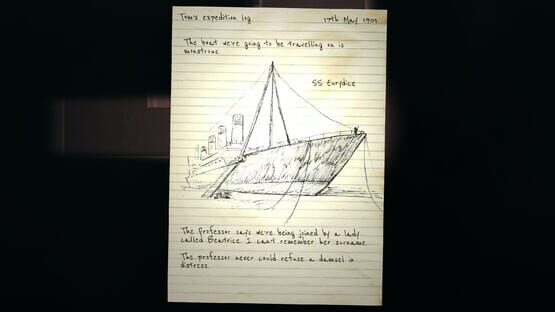 Tom's expedition log 17th May 1901
The boat we're going to be travelling on is
monstrous
SS Eurydice
The Professor says we're being joined by a lady
called Beatrice. I can't remember her surname
The professor never could refuse a damsel in
distress